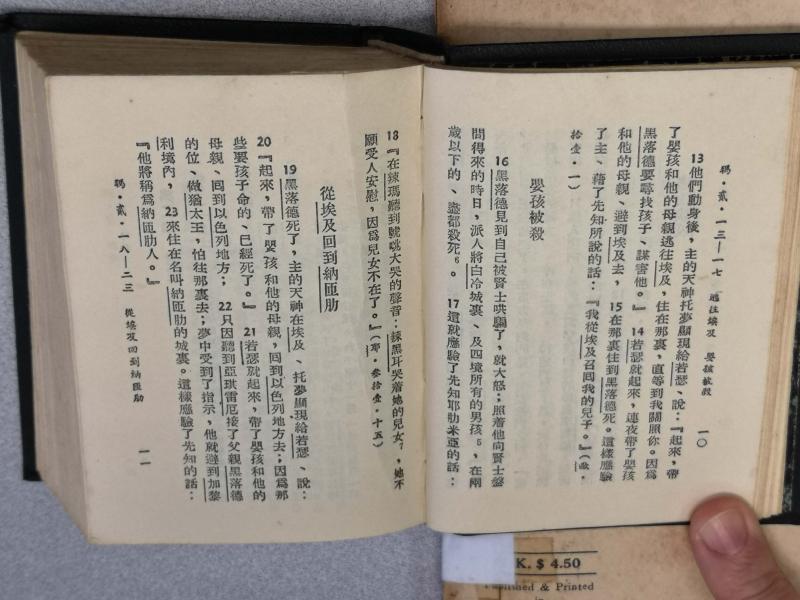 瑪・貳・一三—一七　逃往埃及　嬰孩被殺　一〇
13他們動身後，主的天神托夢顯現給若瑟、說：『起來，帶
了嬰孩和他的母親逃往埃及，住在那裏，直等到我關照你。因爲
黑落德要尋找孩子、謀害他。』14若瑟就起來，連夜帶了嬰孩
和他的母親、避到埃及去，15在那裏住到黑落德死。這樣應驗
了主、藉了先知所說的話：『我從埃及召回我的兒子。』（歐・
拾壹・一）
嬰孩被殺
16黑落德見到自己被賢士哄騙了，就大怒；照着他向賢士盤
問得來的時日，派人將白冷城裏、及四境所有的男孩5，在兩
歲以下的、盡都殺死6。17這就應驗了先知耶肋米亞的話：
18『在辣瑪聽到號咷大哭的聲音：辣黑耳哭着她的兒女7，她不
願受人安慰，因爲兒女不在了。』（耶・叁拾壹・十五）
從埃及回到納匝肋
19黑落德死了，主的天神在埃及、托夢顯現給若瑟、說：
20『起來，帶了嬰孩和他的母親，回到以色列地方去；因爲那
些要孩子命的、已經死了。』21若瑟就起來，帶了嬰孩和他的
母親、回到以色列地方；22只因聽到亞琪雷厄接了父親黑落德
的位、做猶太王，怕往那裏去；夢中受到了指示，他就避到加黎
利境內，23來住在名叫納匝肋的城裏。這樣應驗了先知的話：
『他將稱爲納匝肋人。』
瑪・貳・一八—二三　從埃及回到納匝肋　一一
K. $ 4.50
Published & Printed
in